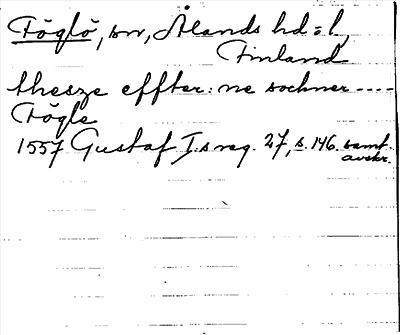 Föglö, sn, Ålands hd o l,
Finland
thesze effter: ne sochner ----
Fögle
1557 Gustaf I:s reg. 27, s. 146. samt.
avskr.